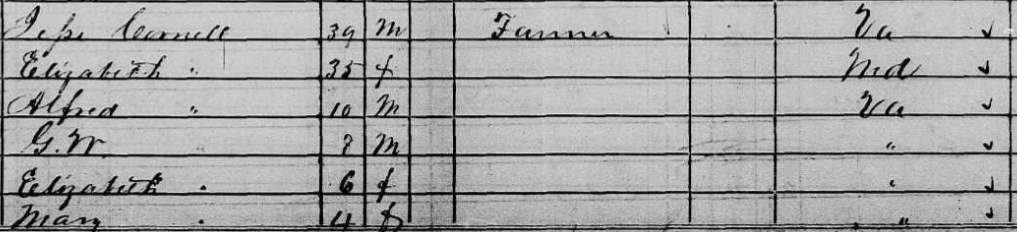 Jesse Cornell 39 M Farmer Va ✓
Elizabeth " 35 f Md ✓
Alfred " 10 M Va ✓
G. W. 8 M " ✓
Elizabeth " 6 f " ✓
Mary " 4 f " ✓